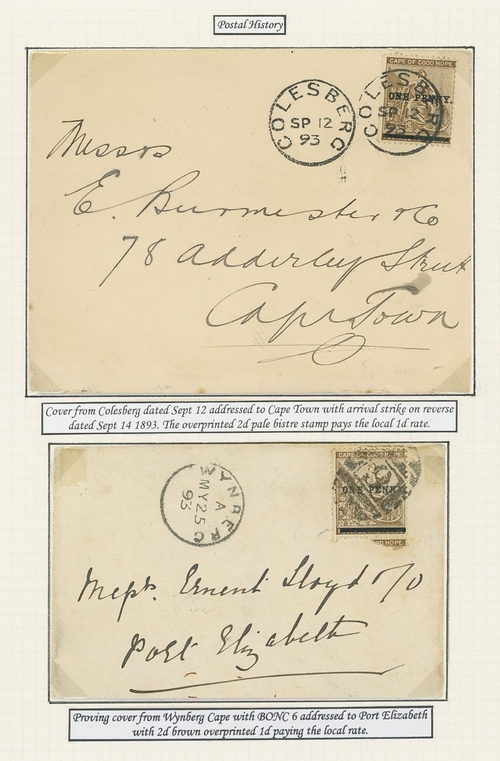 Postal History
CAPE OF GOOD HOPE
ONE PENNY.
COLESBERG
SP 12
93
COLESBERG
SP 12
93
Messrs
E. Burmester & Co
78 Adderley Street
Cape Town
Cover from Colesberg dated Sept 12 addressed to Cape Town with arrival strike on reverse
dated Sept 14 1893. The overprinted 2d pale bistre stamp pays the local 1d rate.
WYNBERG
A
MY 25
93
ONE PENNY.
OOD HOPE
Ernest Lloyd
Port Elizabeth
Proving cover from Wynberg Cape with BONC 6 addressed to Port Elizabeth
with 2d brown overprinted 1d paying the local rate.